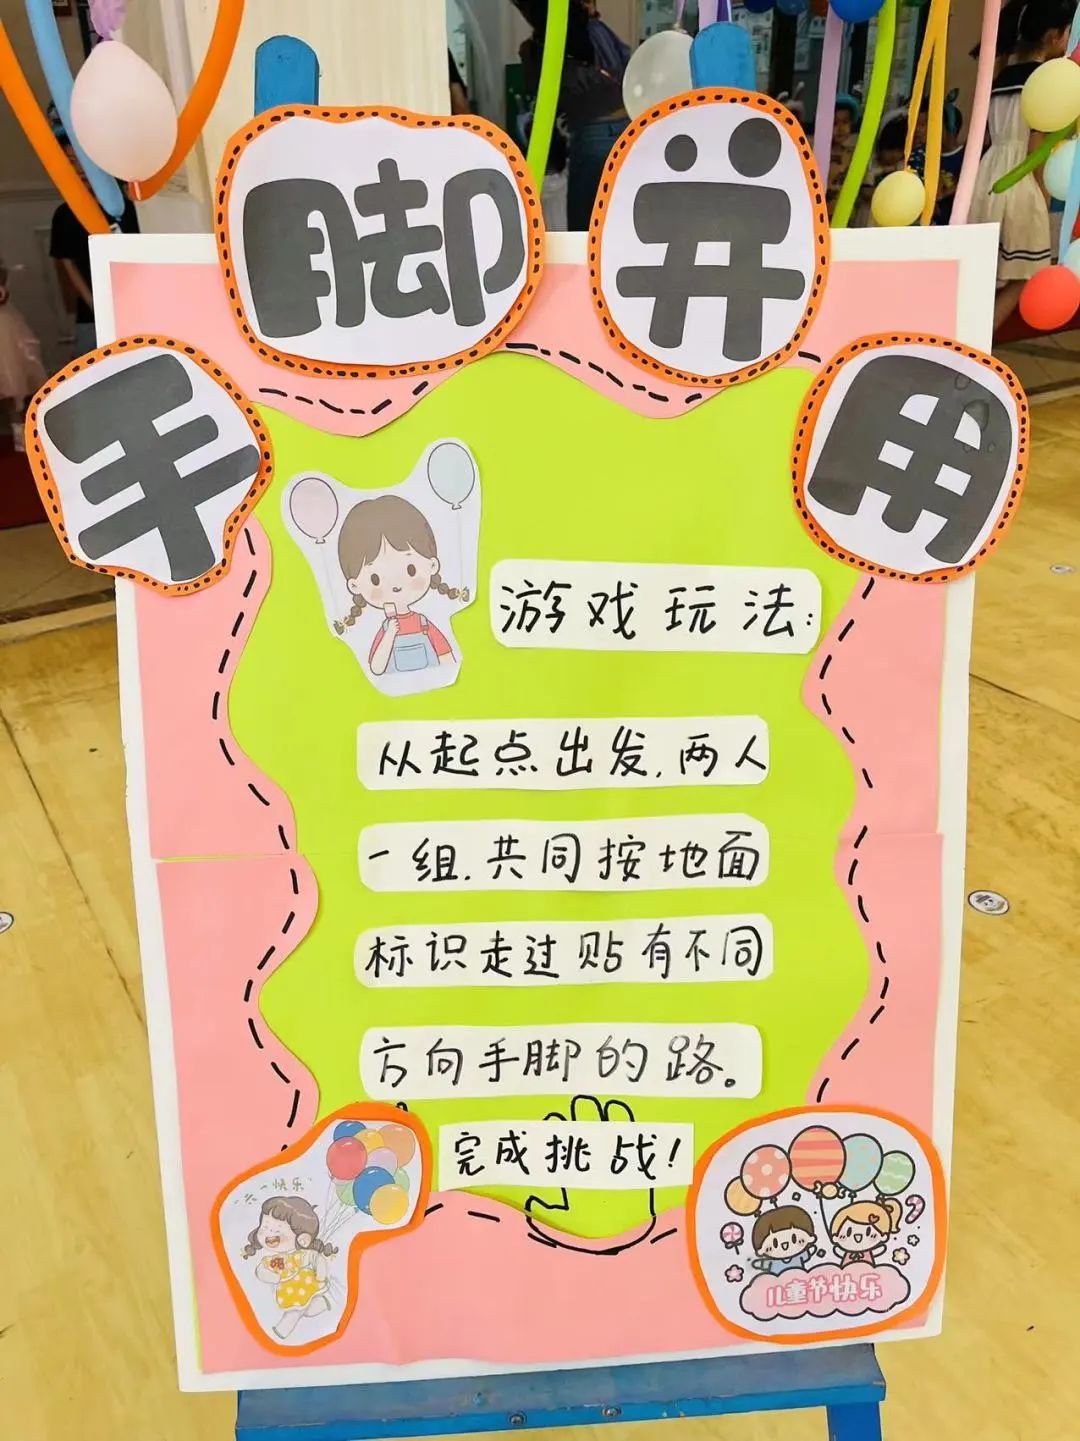 手脚并用
游戏玩法:
从起点出发,两人
一组.共同按地面
标识走过贴有不同
方向手脚的路。
完成挑战!
六一快乐
儿童节快乐